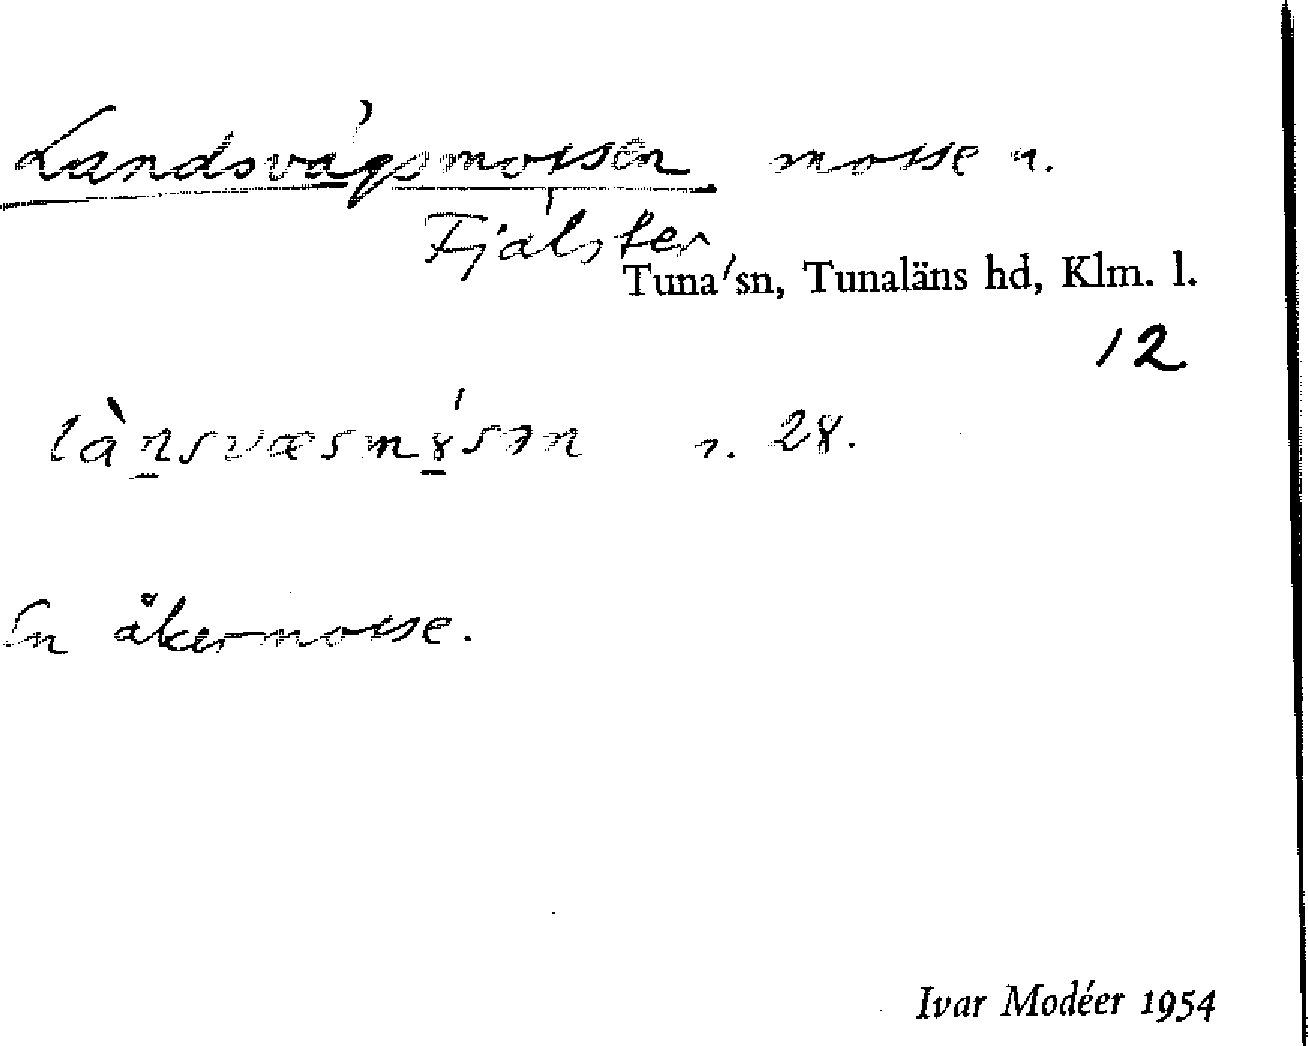 Landsvägsmossen mosse n.
Fjälster
Tuna sn, Tunaläns hd, Klm. l.
12
n. 28.
En åkermosse.
Ivar Modéer 1954